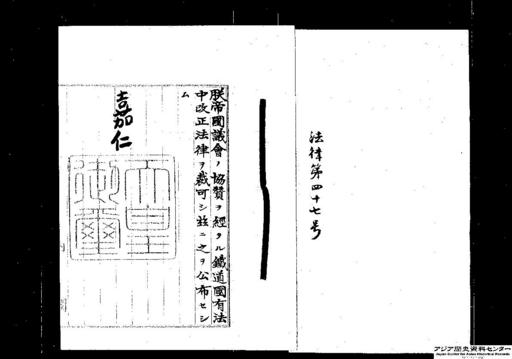 法律第四十七号
朕帝國議會ノ協贊ヲ經タル鐵道國有法
中改正法律ヲ裁可シ茲ニ之ヲ公布セシ
ム
嘉仁
天皇
御璽
アジア歴史資料センター
Japan Center for Asian Historical Records